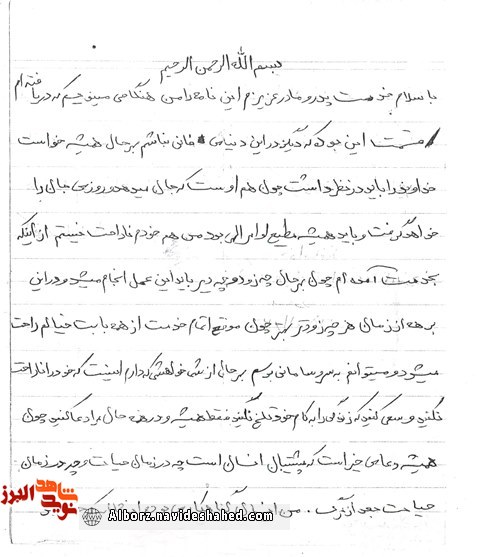 بسم الله الرحمن الرحیم
با سلام خدمت پدر و مادر عزیزم این نامه را من هنگامی مینویسم که دریافته‌ام
قسمت این بود که دیگر در این دنیای فانی نباشم بهرحال همیشه خواست
خداوند را باید در نظر داشت چون هم اوست که جان میدهد و روزی جان را
خواهد گرفت و باید همیشه مطیع اوامر الهی بود من هم خودم ناراحت نیستم از اینکه
بخدمت آمده‌ام چون بهرحال چه زود و چه دیر باید این عمل انجام میشد و در این
برهه از زمان هر چه زودتر بهتر چون موقع اتمام خدمت از همه بابت خیالم راحت
میشود و میتوانم به سر و سامانی برسم بهرحال از شما خواهشی که دارم اینست که خود را ناراحت
نکنید و سعی کنید که زندگی را به کام خود تلخ نکنید فقط همیشه و در همه حال مرا دعا کنید چون
همیشه دعای خیر است که پشتیبان انسان است چه در زمان حیات و چه در زمان
حیات بعد از مرگ. من
نوید شاهد البرز
Alborz.navideshahed.com